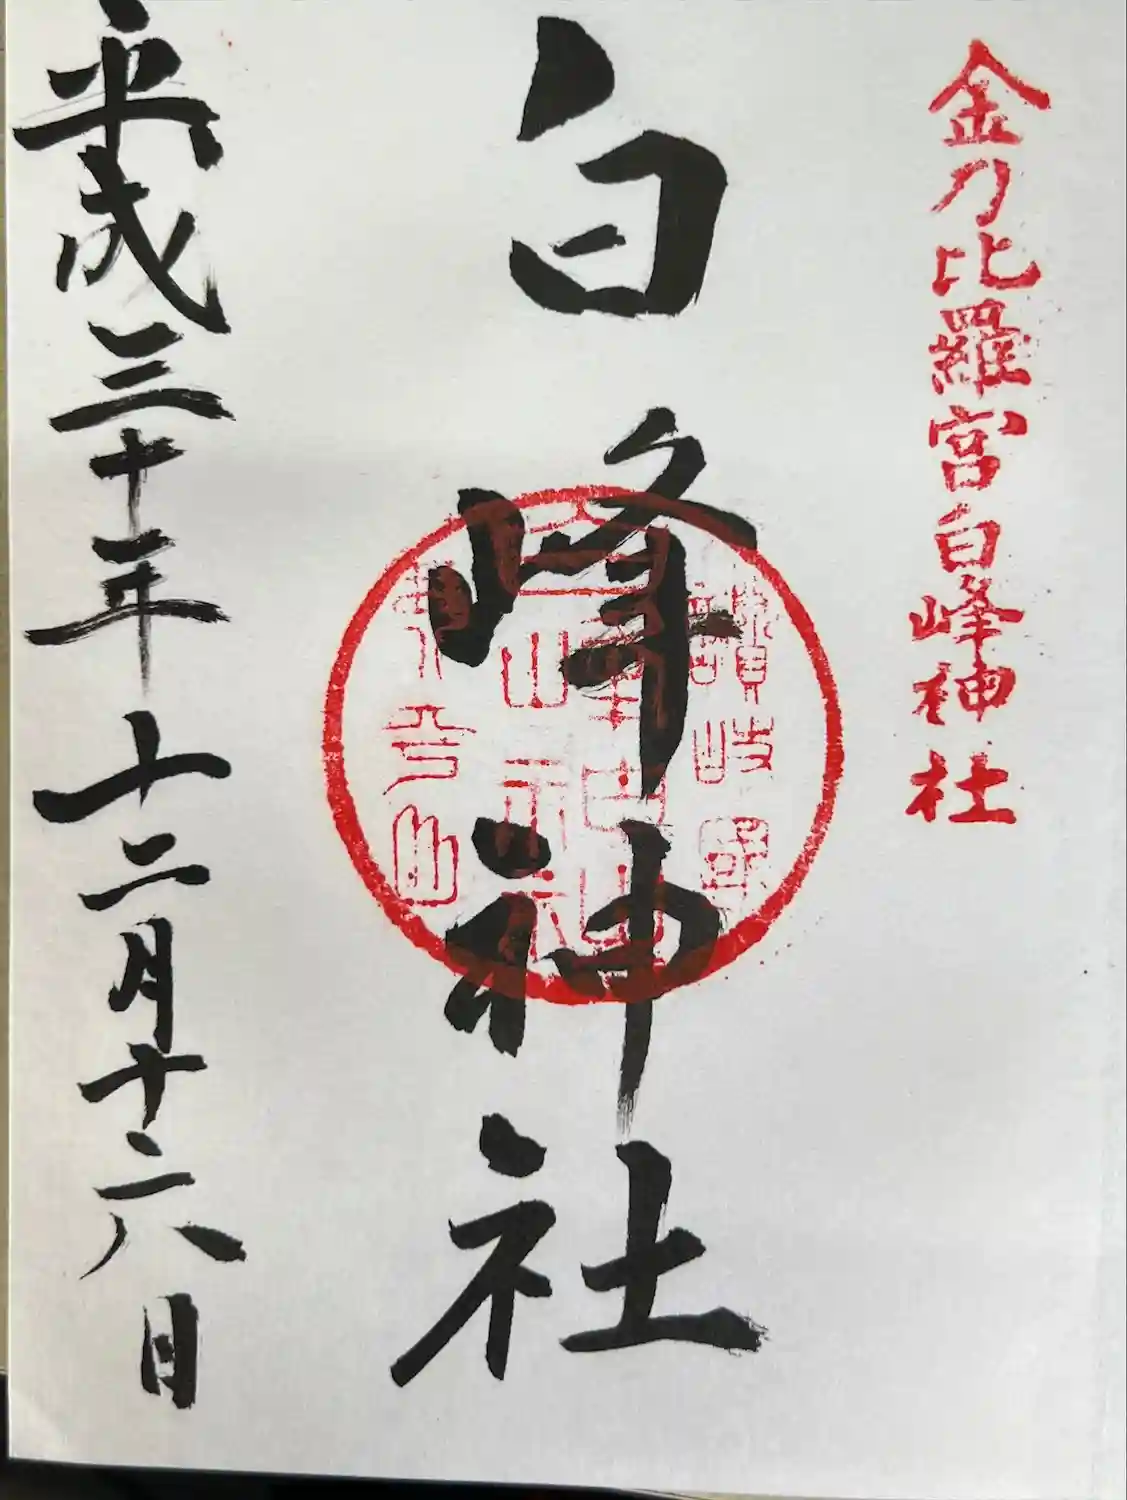 金刀比羅宮白峰神社
白峰神社
讃岐國
白峰神社
平成三十年十二月十六日